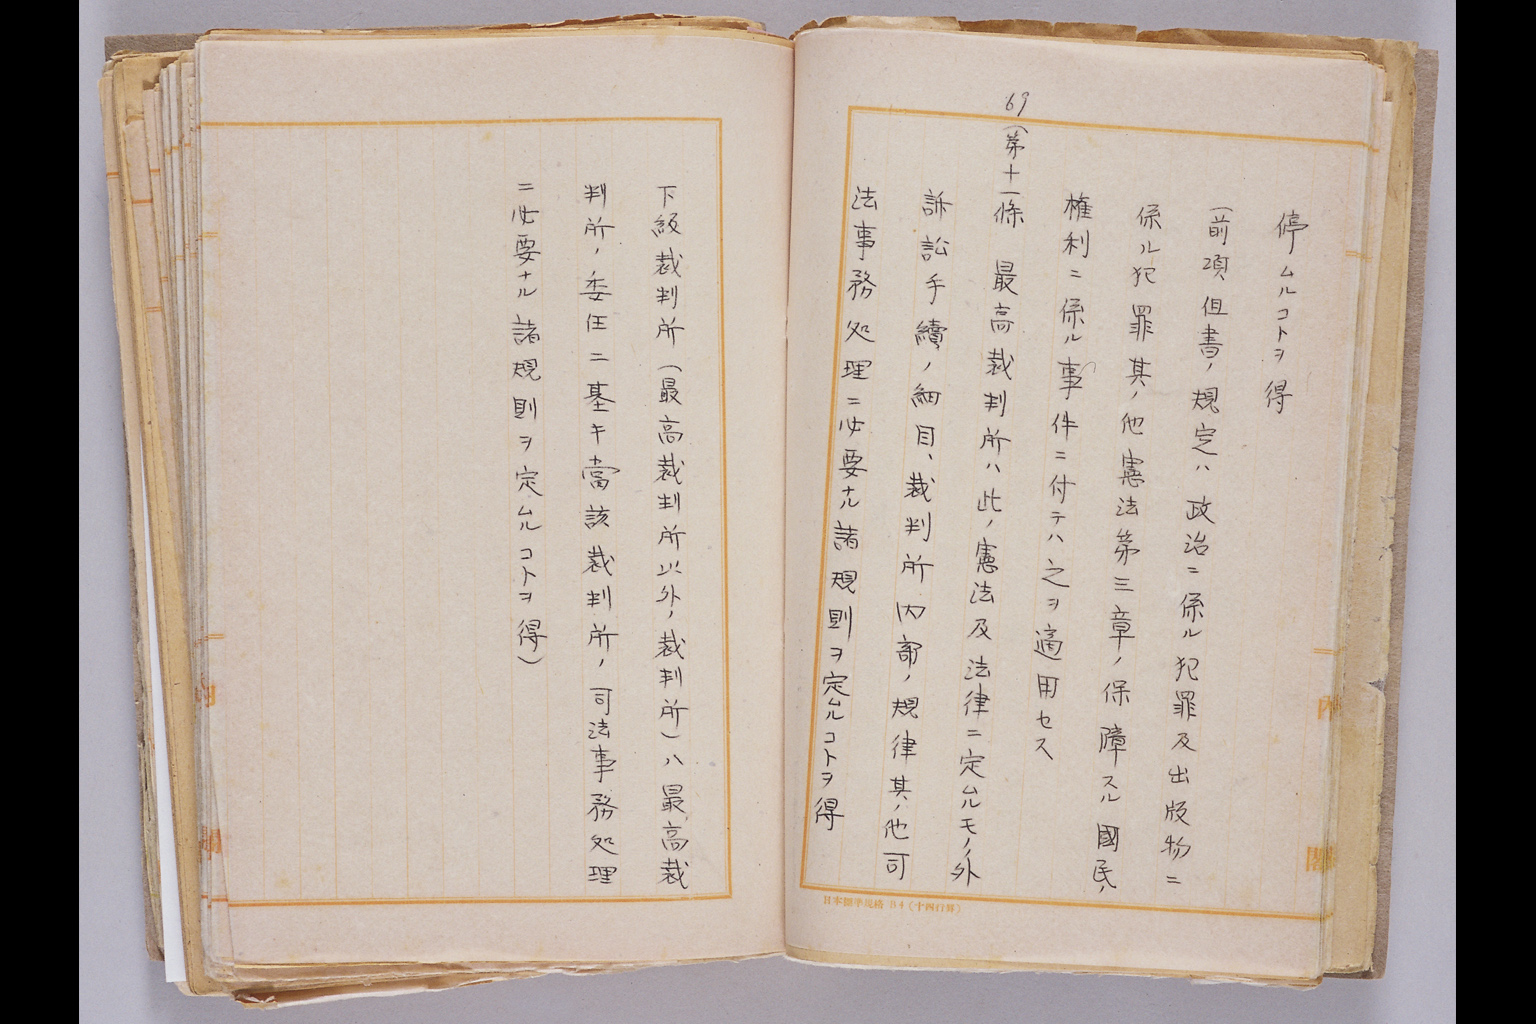 停ムルコトヲ得
(前項但書ノ規定ハ政治ニ係ル犯罪及出版物ニ
係ル犯罪其ノ他憲法第三章ノ保障スル國民ノ
権利ニ係ル事件ニ付テハ之ヲ適用セス
69
(第十一條 最高裁判所ハ此ノ憲法及法律ニ定ムルモノノ外
訴訟手續ノ細目、裁判所内部ノ規律其ノ他司
法事務処理ニ必要ナル諸規則ヲ定ムルコトヲ得
日本標準規格B4(十四行罫)
内
閣
下級裁判所(最高裁判所以外ノ裁判所)ハ最高裁
判所ノ委任ニ基キ當該裁判所ノ司法事務処理
ニ必要ナル諸規則ヲ定ムルコトヲ得)